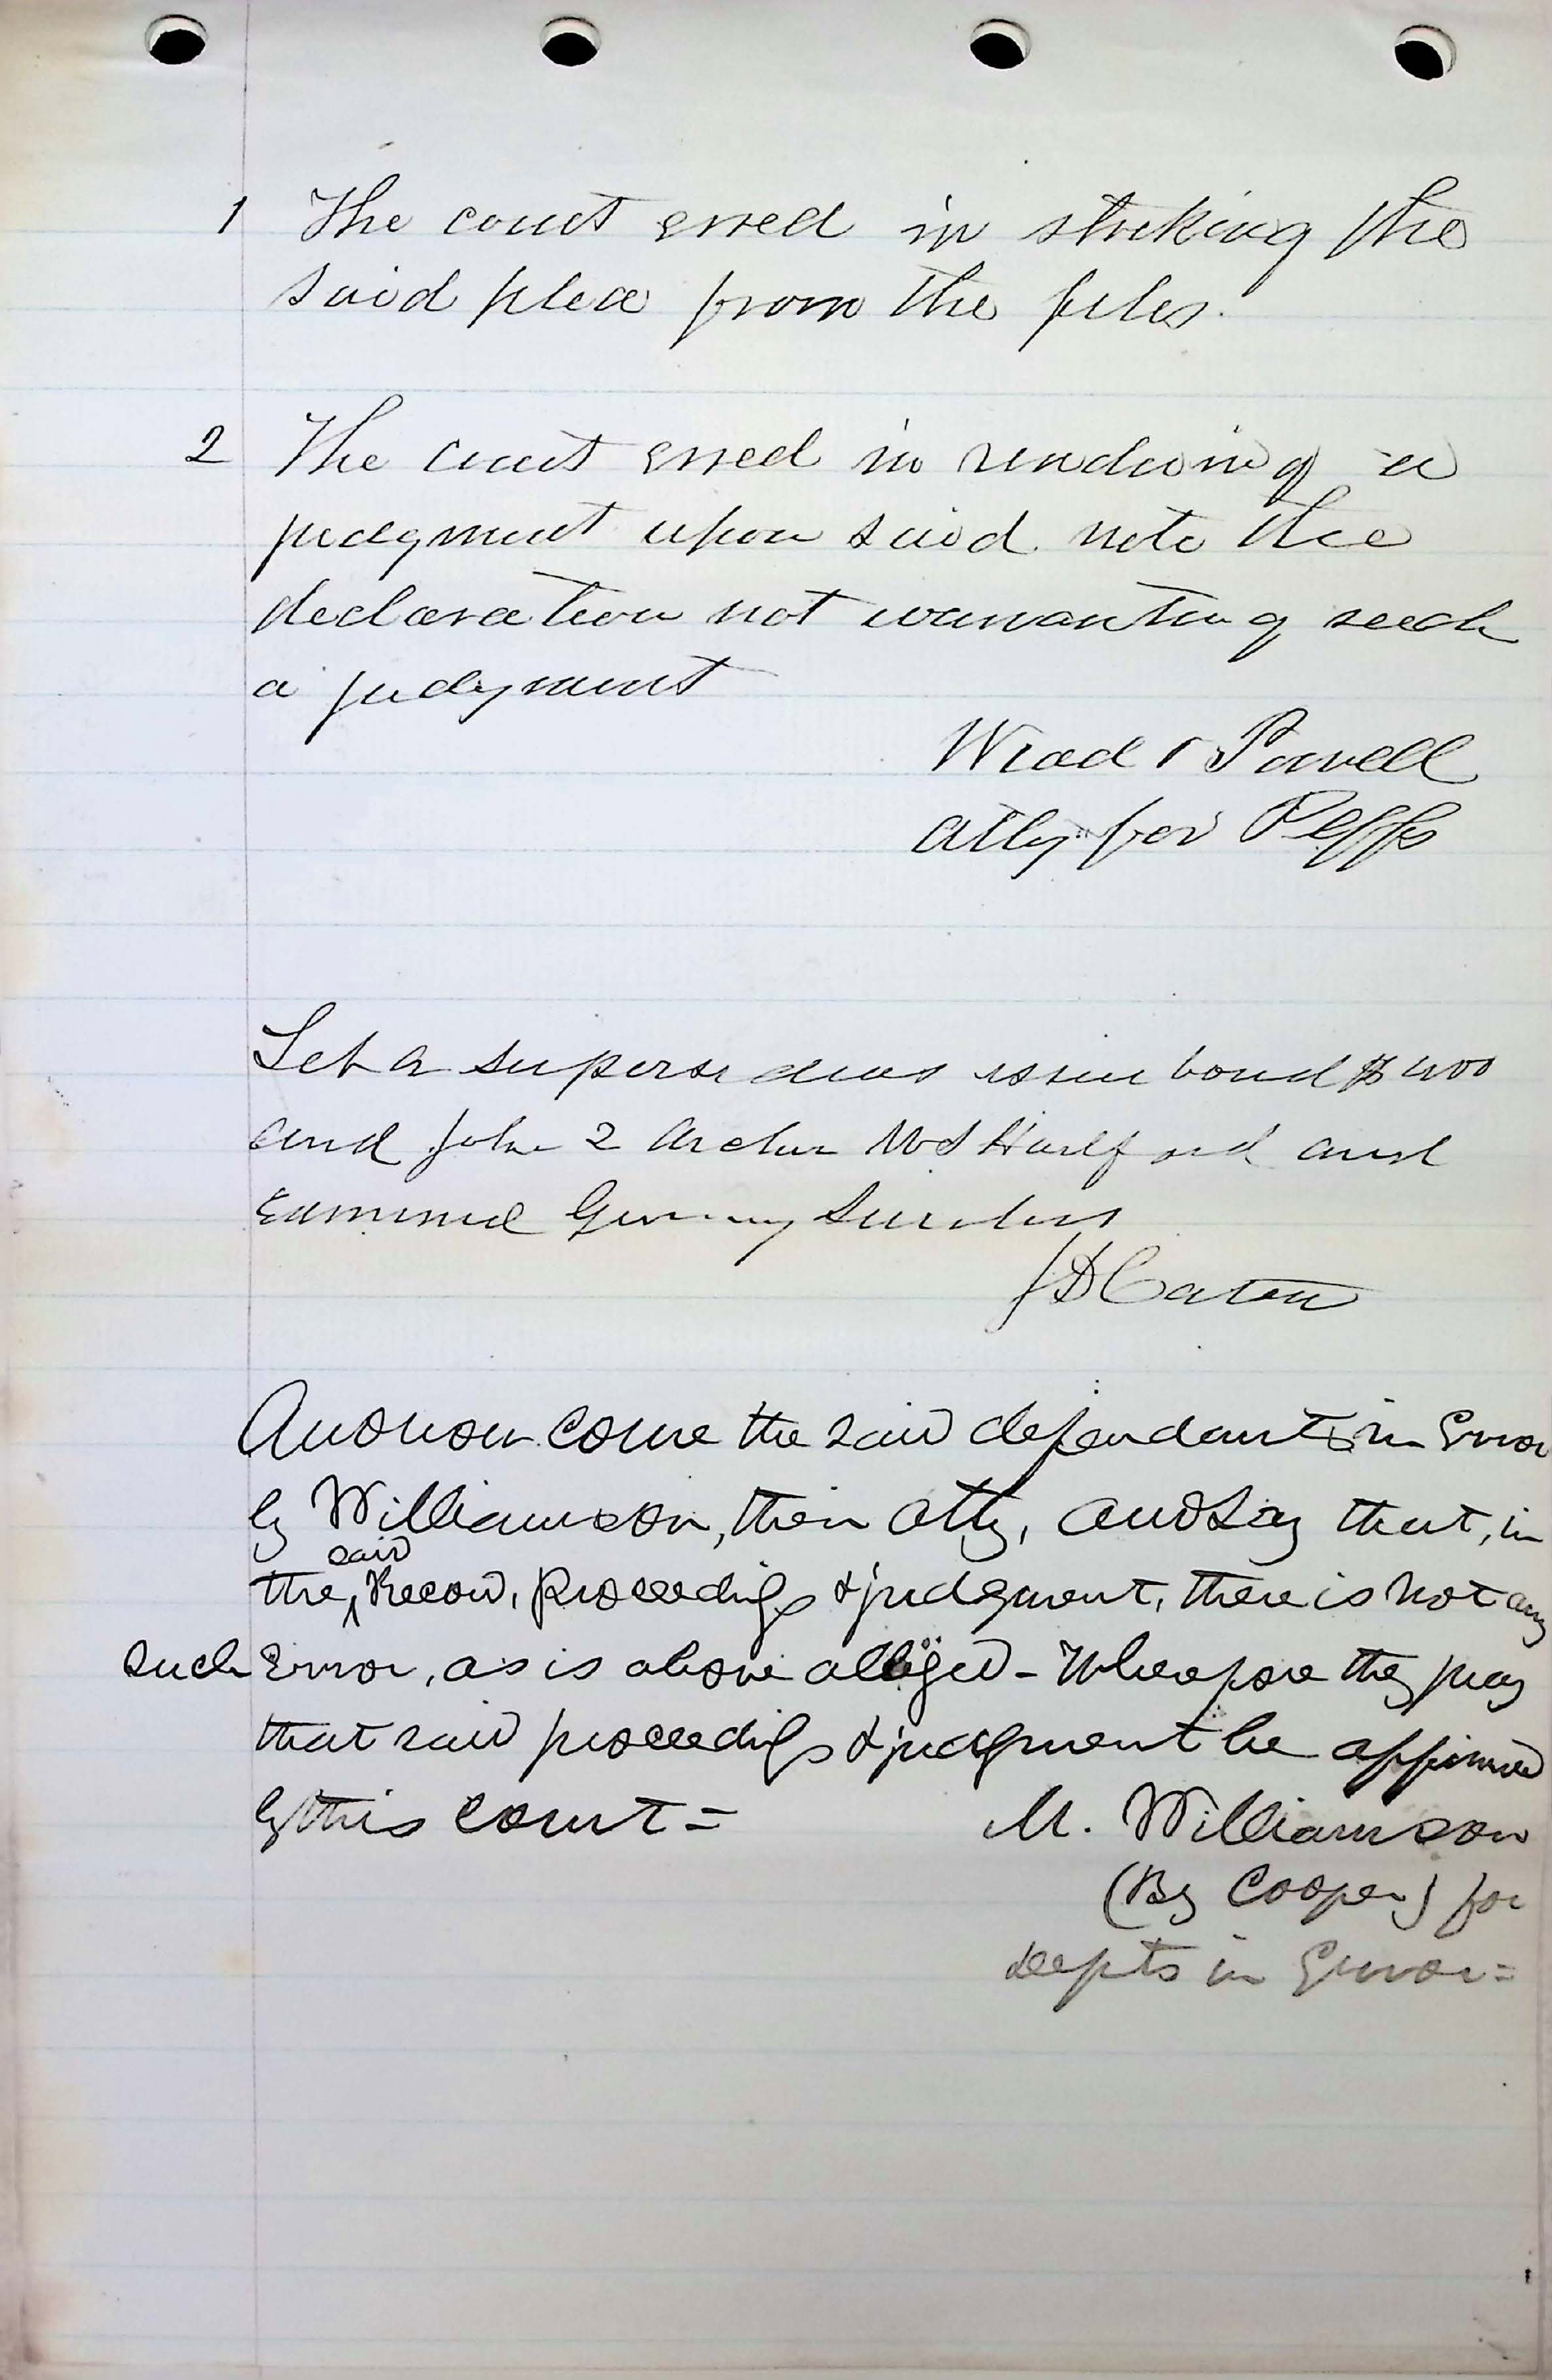 1 The court erred in striking the
said plea from the files.
2 The court erred in rendering a
judgment upon said note the
declaration not warranting such
a judgment
Wead & Powell
Atty for Plffs
Let a supersedeas issue bond $400
and John 2 Archer and
Gunning Sureties
J D Caton
And now come the said defendants in Error
by Williamson, their atty, and say that, in
the said Record, proceedings & judgment, there is not any
such Error, as is above alleged - Wherefore they pray
that said proceedings & judgment be affirmed
by this court =
M. Williamson
(By Cooper) for
defts in Error =